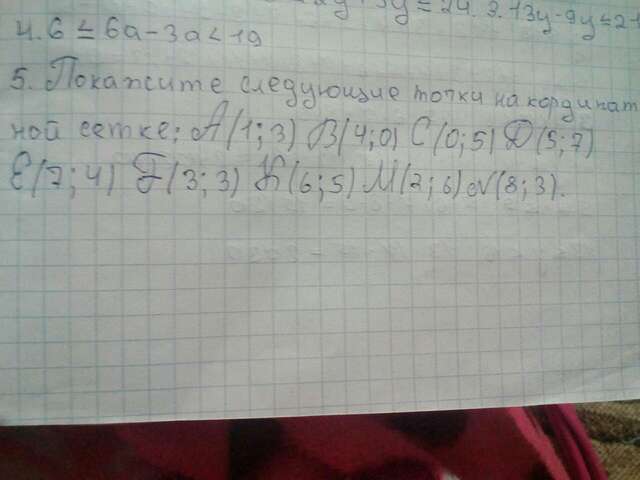 y = 24. 9. 13y - 9y = 2
4. 6 ≤ 6a - 3a < 19
5. Покажите следующие точки на кординат
ной сетке: A(1; 3) B(4; 0) C(0; 5) D(5; 7)
E(7; 4) F(3; 3) K(6; 5) M(2; 6) N(8; 3).